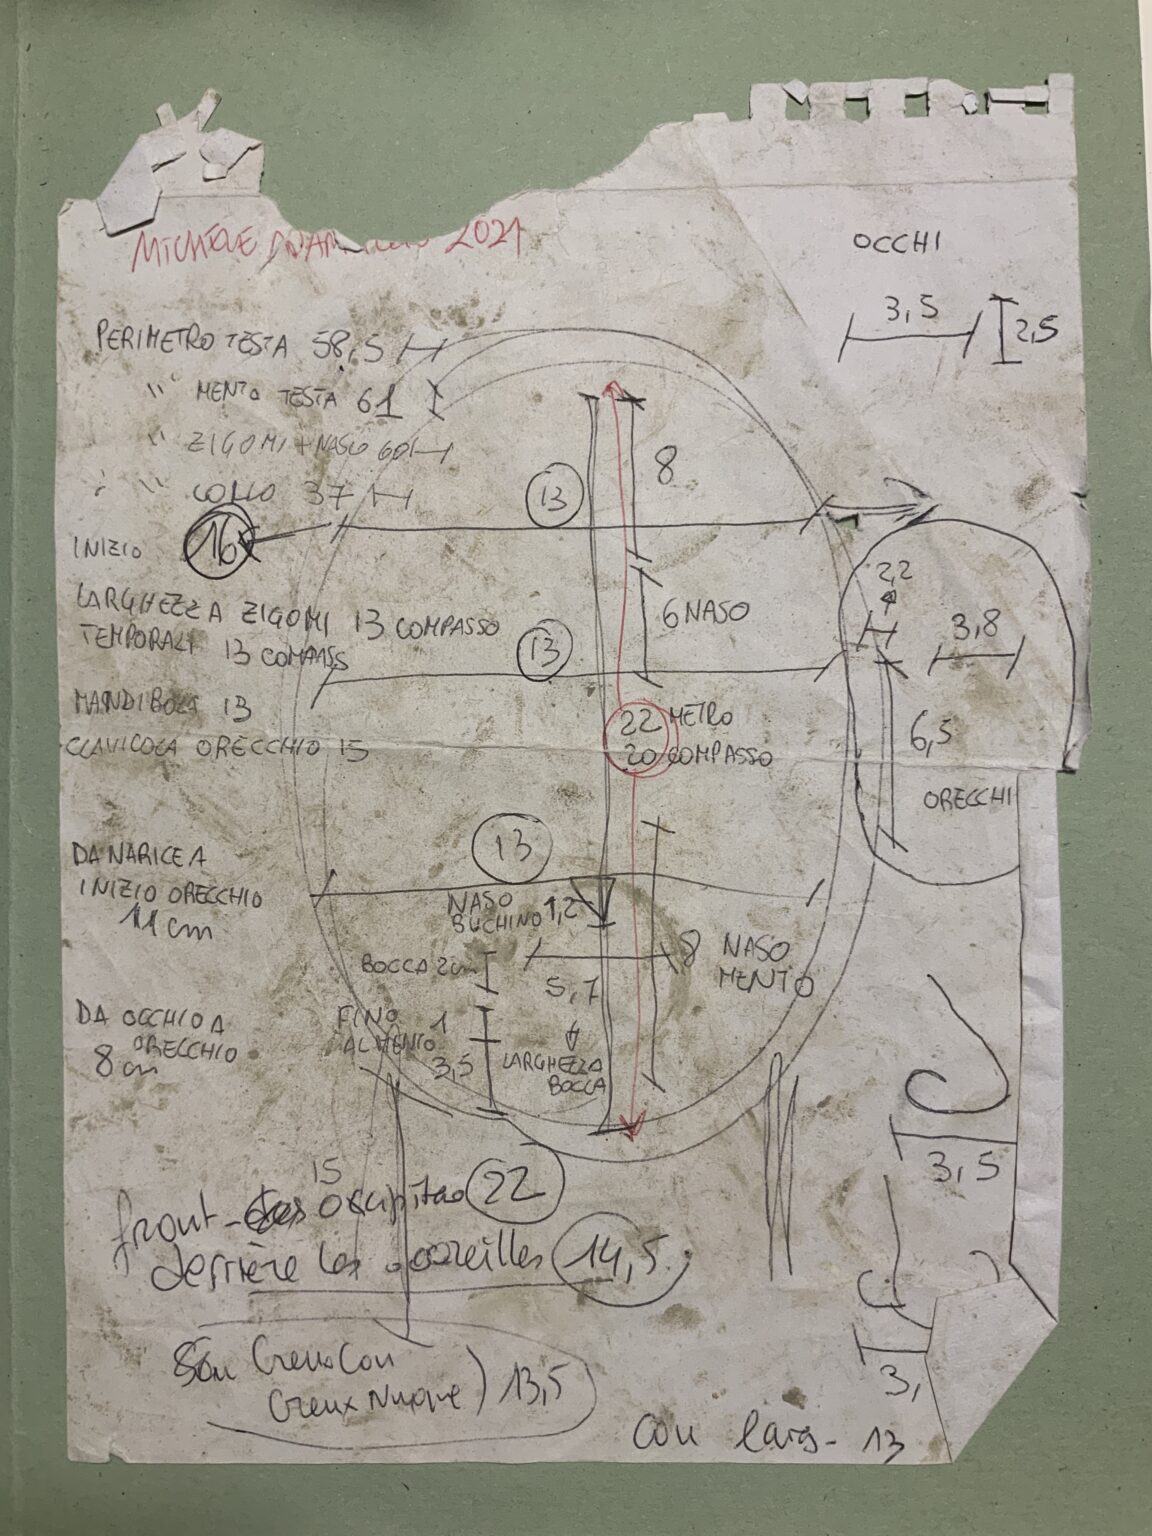 2021
OCCHI
3,5
2,5
PERIMETRO TESTA 58,5
" MENTO TESTA 61
" ZIGOMI + NASO 60
" COLLO 37
8
13
16
INIZIO
LARGHEZZA ZIGOMI 13 COMPASSO
TEMPORALI 13 COMPASS
6 NASO
13
2,2
3,8
MANDIBOLA 13
CLAVICOLA ORECCHIO 15
22 METRO
20 COMPASSO
6,5
ORECCHI
13
DA NARICE A
INIZIO ORECCHIO
11 cm
NASO
BUCHINO 1,2
BOCCA 2cm
5,7
8 NASO
MENTO
DA OCCHIO A
ORECCHIO
8 cm
FINO 1
AL MENTO
3,5
LARGHEZZA
BOCCA
3,5
15
front - 22
derrière les oreilles 14,5
Creux Cou
Creux Nuque) 13,5
3,
Cou larg - 13